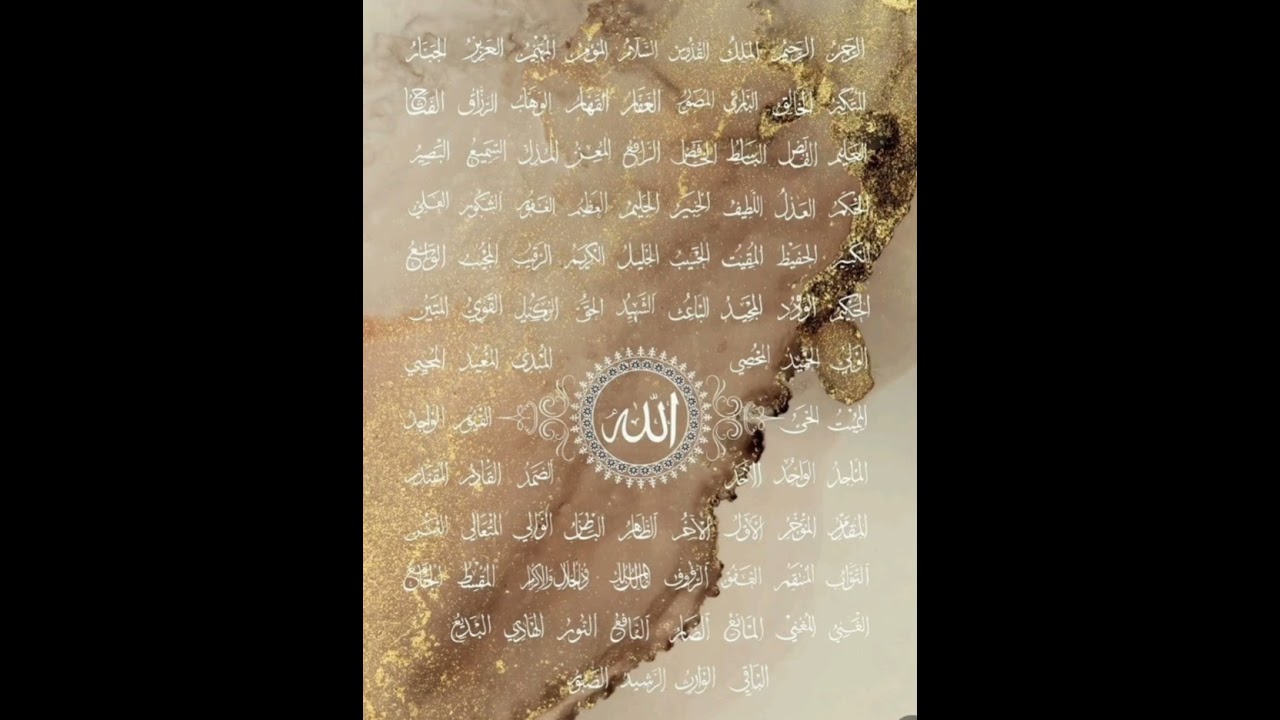 الرحمن الرحيم الملك القدوس السلام المؤمن المهيمن العزيز الجبار
المتكبر الخالق البارئ المصور الغفار القهار الوهاب الرزاق الفتاح
العليم القابض الباسط الخافض الرافع المعز المذل السميع البصير
الحكم العدل اللطيف الخبير الحليم العظيم الغفور الشكور العلي
الكبير الحفيظ المقيت الحسيب الجليل الكريم الرقيب المجيب الواسع
الحكيم الودود المجيد الباعث الشهيد الحق الوكيل القوي المتين
الولي الحميد المحصي المبدئ المعيد المحيي
المميت الحي الله القيوم الواجد
الماجد الواحد الأحد الصمد القادر المقتدر
المقدم المؤخر الأول الآخر الظاهر الباطن الوالي المتعالي
التواب المنتقم العفو الرؤوف مالك الملك ذو الجلال والإكرام المقسط الجامع
الغني المغني المانع الضار النافع النور الهادي البديع
الباقي الوارث الرشيد الصبور